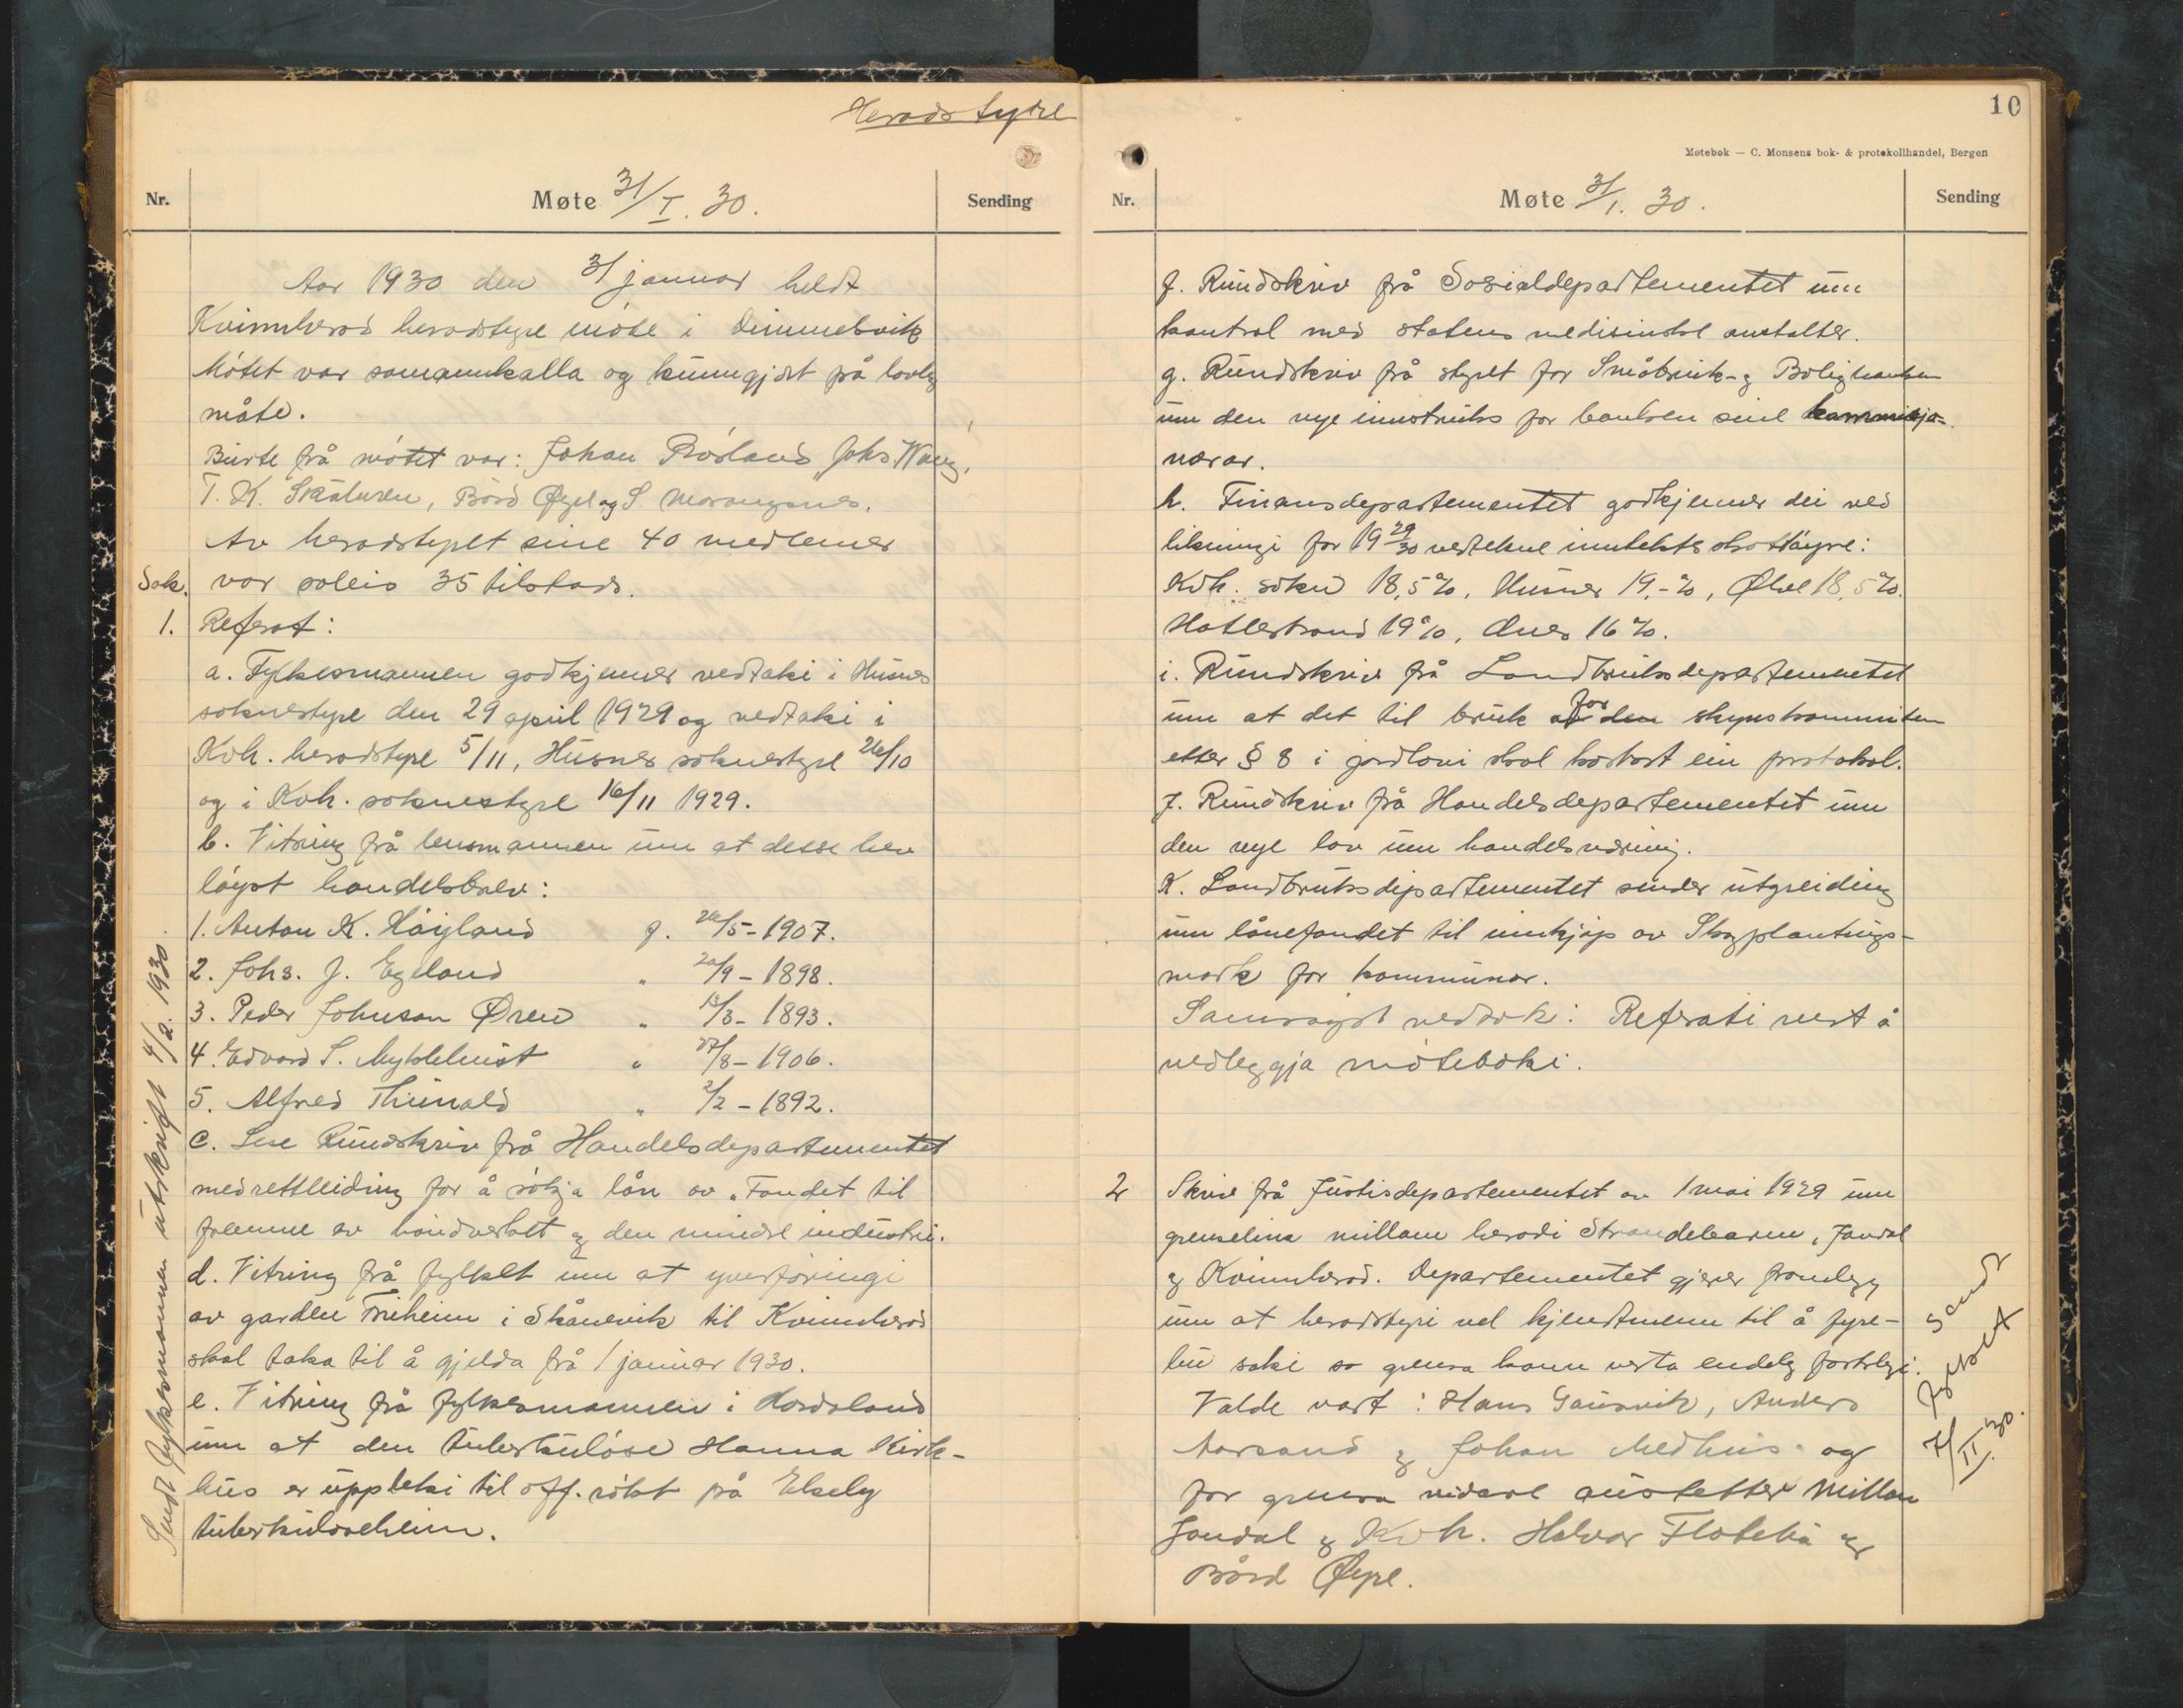 Heradstyre
Nr.
Møte 31/I. 30.
Sending
Aar 1930 den 31 januar heldt
Kvinnherad heradstyre møte i Dimmelsvik
Møtet var samanmkalla og kunngjort på lovleg
måte.
Burte frå møtet var: Johan Røsland, Johs Waage,
T. K. Skåluren, Bård Øyre og S.Морangsnes.
Av heradstyret sine 40 medlemer
Sak. var soleis 35 tilstads.
1. Referat:
a. Fylkesmannen godkjenner vedtaki i Husnes
soknestyre den 29 april 1929 og vedtaki i
Kvh. heradstyre 5/11, Husnes soknestyre 26/10
og i Kvh. soknestyre 16/11 1929.
b. Vitring frå lensmannen um at desse hev
løyst handelsbrev:
1. Anton K. Høyland f. 26/5 - 1907.
2. Johs. J. Egeland " 20/9 - 1898.
3. Peder Johnson Øren " 18/3 - 1893.
4. Edvard S. Myklebust " 27/8 - 1906.
5. Alfred Thunald " 2/2 - 1892.
c. Lese Rundskriv frå Handelsdepartementet
med rettleiding for å søkja lån av "Fondet til
fremme av håndverket og den mindre industri.
d. Vitring frå fylket um at yverføringi
av garden Friheim i Skånevik til Kvinnherad
skal taka til å gjelda frå 1 januar 1930.
e. Vitring frå fylkesmannen i Hordaland
um at den tuberkuløse Hanna Kirk-
hus er uppteki til off. røkt på Ekely
tuberkuloseheim.
Sendt fylkesmannen utskrift 4/2. 1930.
10
Møtebok — C. Monsens bok- & protokollhandel, Bergen
Nr.
Møte 31/1. 30.
Sending
f. Rundskriv frå Sosialdepartementet um
kontrol med statens medisinske anstalter.
g. Rundskriv frå styret for Småbruk- og Boligbanken
um den nye innstruks for banken sine kommisjo-
nærar.
h. Finansdepartementet godkjenner dei ved
likningi for 19 29/30 vedtekne inntektsskattøyre:
Kvh. sokn 18,5 %, Husnes 19,- %, Ølve 18,5 %.
Hatlestrand 19 %, Ænes 16 %.
i. Rundskriv frå Landbruksdepartementet
um at det til bruk for den skynskommiten
etter § 8 i jordlovi skal kostast ein protokol.
j. Rundskriv frå Handelsdepartementet um
den nye lov um handelsnæring.
K. Landbruksdepartementet sender utgreiding
um lånefondet til innkjøp av Skogplantings-
mark for kommunar.
Samrøystt vedtok: Referati vert å
vedleggja møteboki.
2 Skriv frå Justisdepartementet av 1 mai 1929 um
grenselina millom heradi Strandebarm, Jondal
og Kvinnherad. Departementet gjerer framlegg
um at heradstyri vel kjendtmenn til å fyre-
bu saki so grensa kann verta endeleg fastslegi.
Valde vart: Hans Gausvik, Anders
Aarsand og Johan Medhus. og
for grensa vidare austetter millom
Jondal og Kvh. Halvor Flatebø og
Bård Øyre.
Sendt
fylket
7/II. 30.